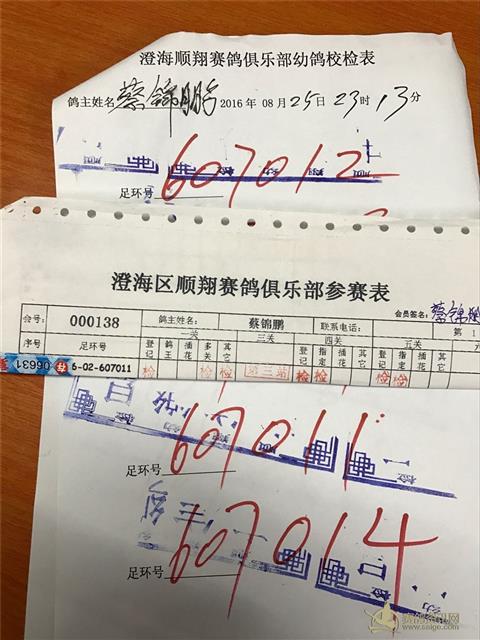 澄海顺翔赛鸽俱乐部幼鸽校检表
鸽主姓名 蔡锦鹏 2016 年 08 月 25 日 23 时 13 分
607012
足环号
澄海区顺翔赛鸽俱乐部参赛表
会员签名: 蔡锦鹏
会号: 000138 鸽主姓名: 蔡锦鹏 联系电话: 第 1
一关 三关 四关 五关 六
序号 足环号 登记 鸽王 插花 多关 其它 登记 指定 插花 其它 登记 指定 插花 其它
06631 6-02-607011 检 检 第三站 检 检 检 检
607011
足环号
607014
足环号
赛鸽资讯网
www.saige.com